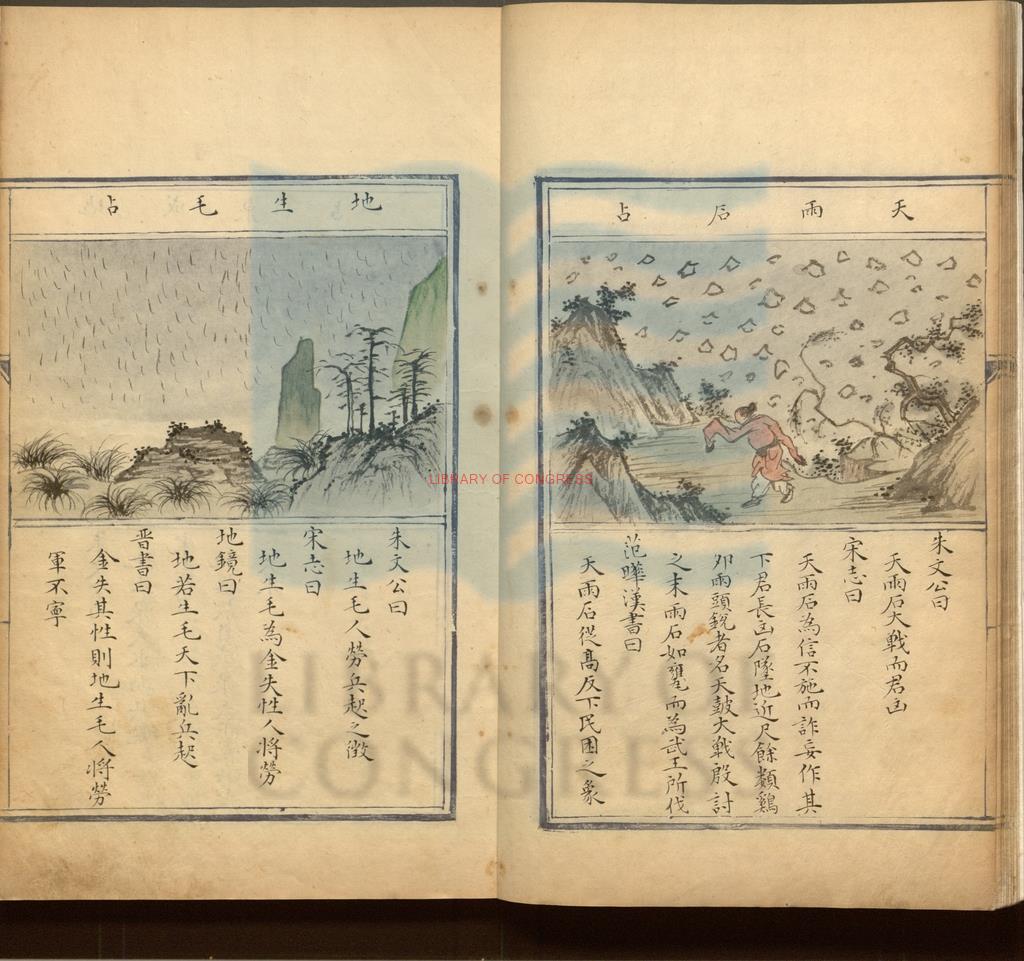 天雨石占
朱文公曰
天雨石大戰而君凶
宋志曰
天雨石為信不施而詐妄作其
下君長凶石墜地近尺餘類鷄
卵雨頭銳者名天鼓大戰殷討
之末雨石如甕而為武王所伐
范曄漢書曰
天雨石從髙反下民困之象
地生毛占
朱文公曰
地生毛人勞兵起之徵
宋志曰
地生毛為金失性人將勞
地鏡曰
地若生毛天下亂兵起
晋書曰
金失其性則地生毛人將勞
軍不寧
LIBRARY OF CONGRESS
LIBRARY OF
CONGRESS